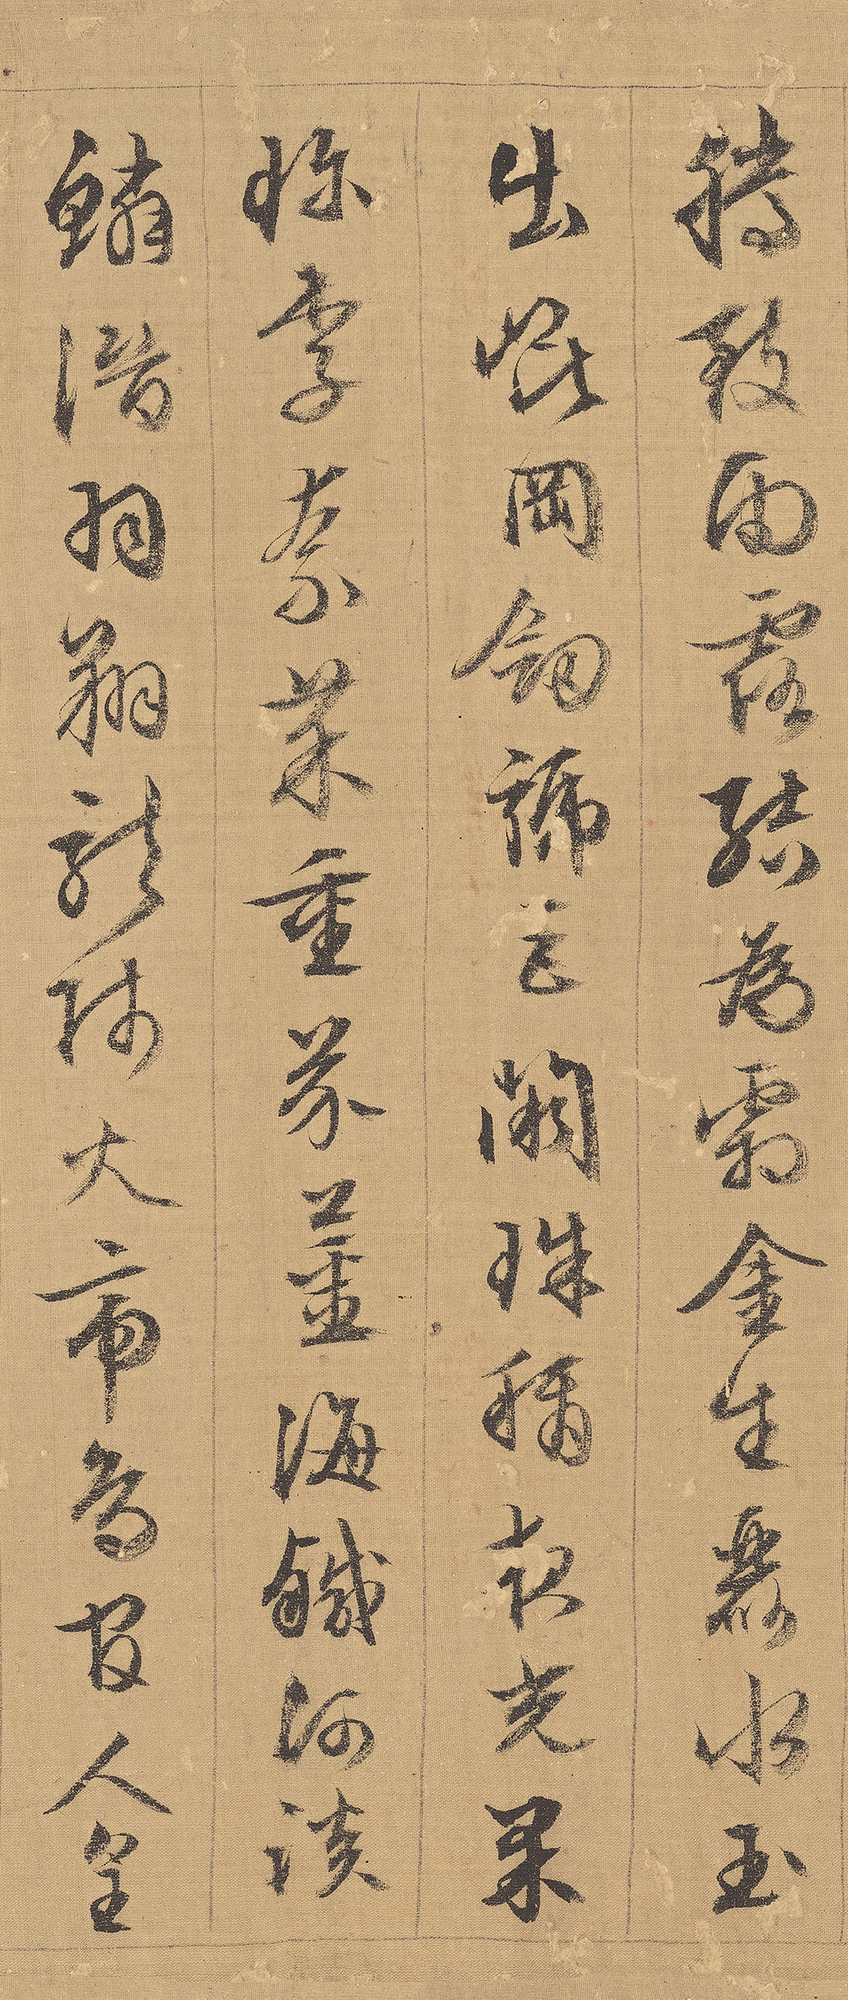 騰致雨露結為霜金生麗水玉
出崐岡劍號巨闕珠稱夜光果
珎李柰菜重芥薑海鹹河淡
鱗潛羽翔龍師火帝鳥官人皇